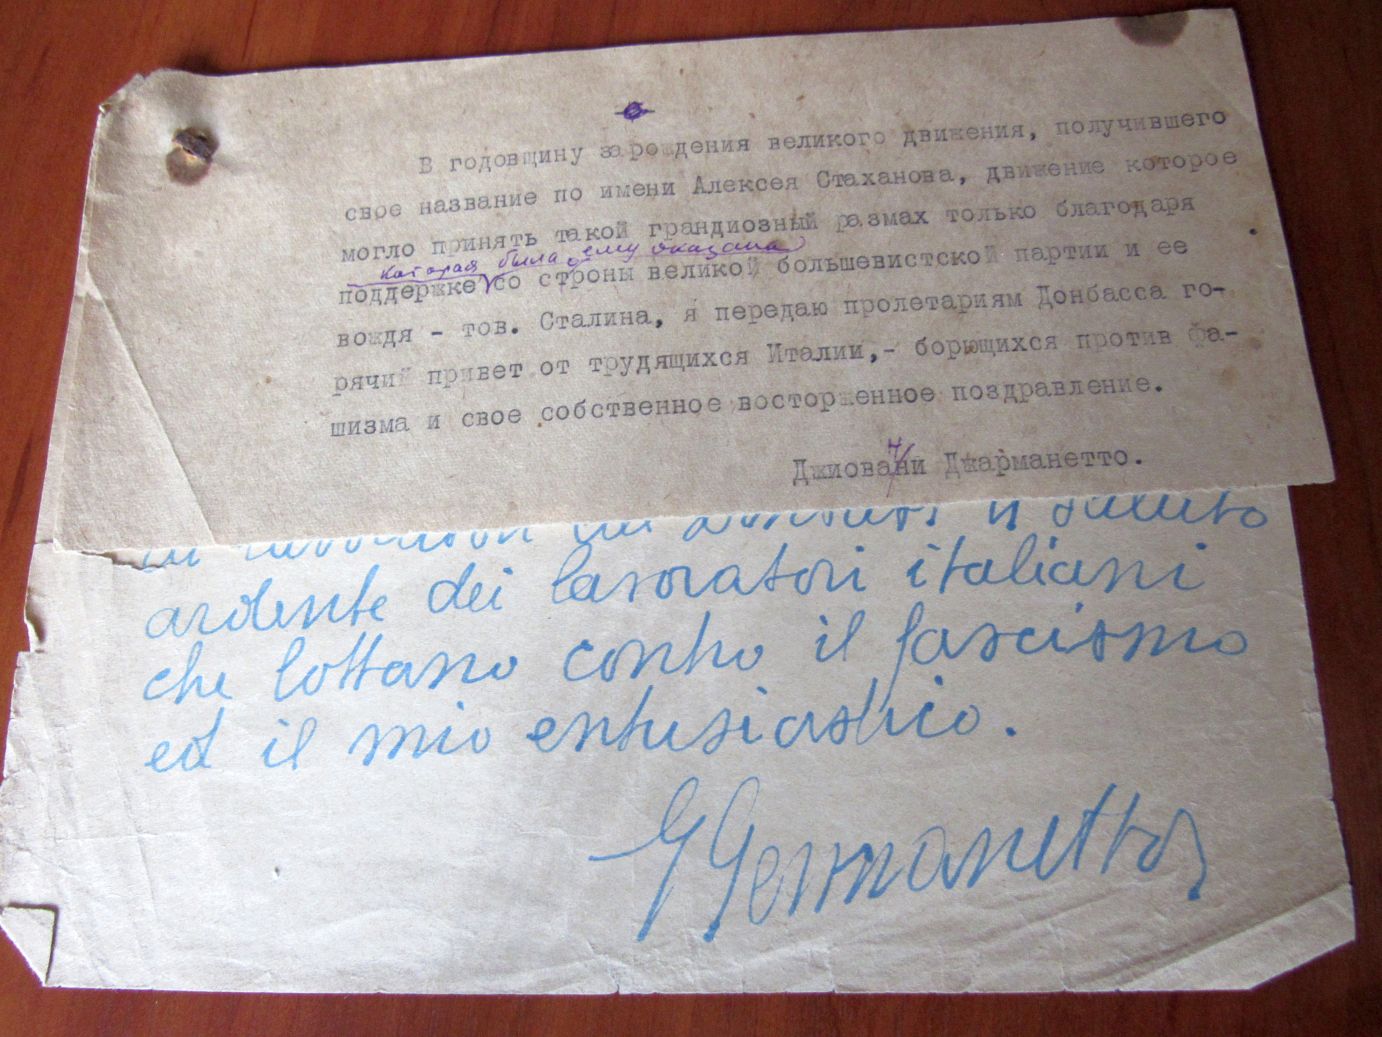 В годовщину зарождения великого движения, получившего
свое название по имени Алексея Стаханова, движение которое
могло принять такой грандиозный размах только благодаря
которая была ему оказана
поддержке со строны великой большевистской партии и ее
вождя - тов. Сталина, я передаю пролетариям Донбасса го-
рячий привет от трудящихся Италии,- борющихся против фа-
шизма и свое собственное восторженное поздравление.
Джиовани Джарманетто.
il saluto
ardente dei lavoratori italiani
che lottano contro il fascismo
ed il mio entusiastico.
G Germanetto